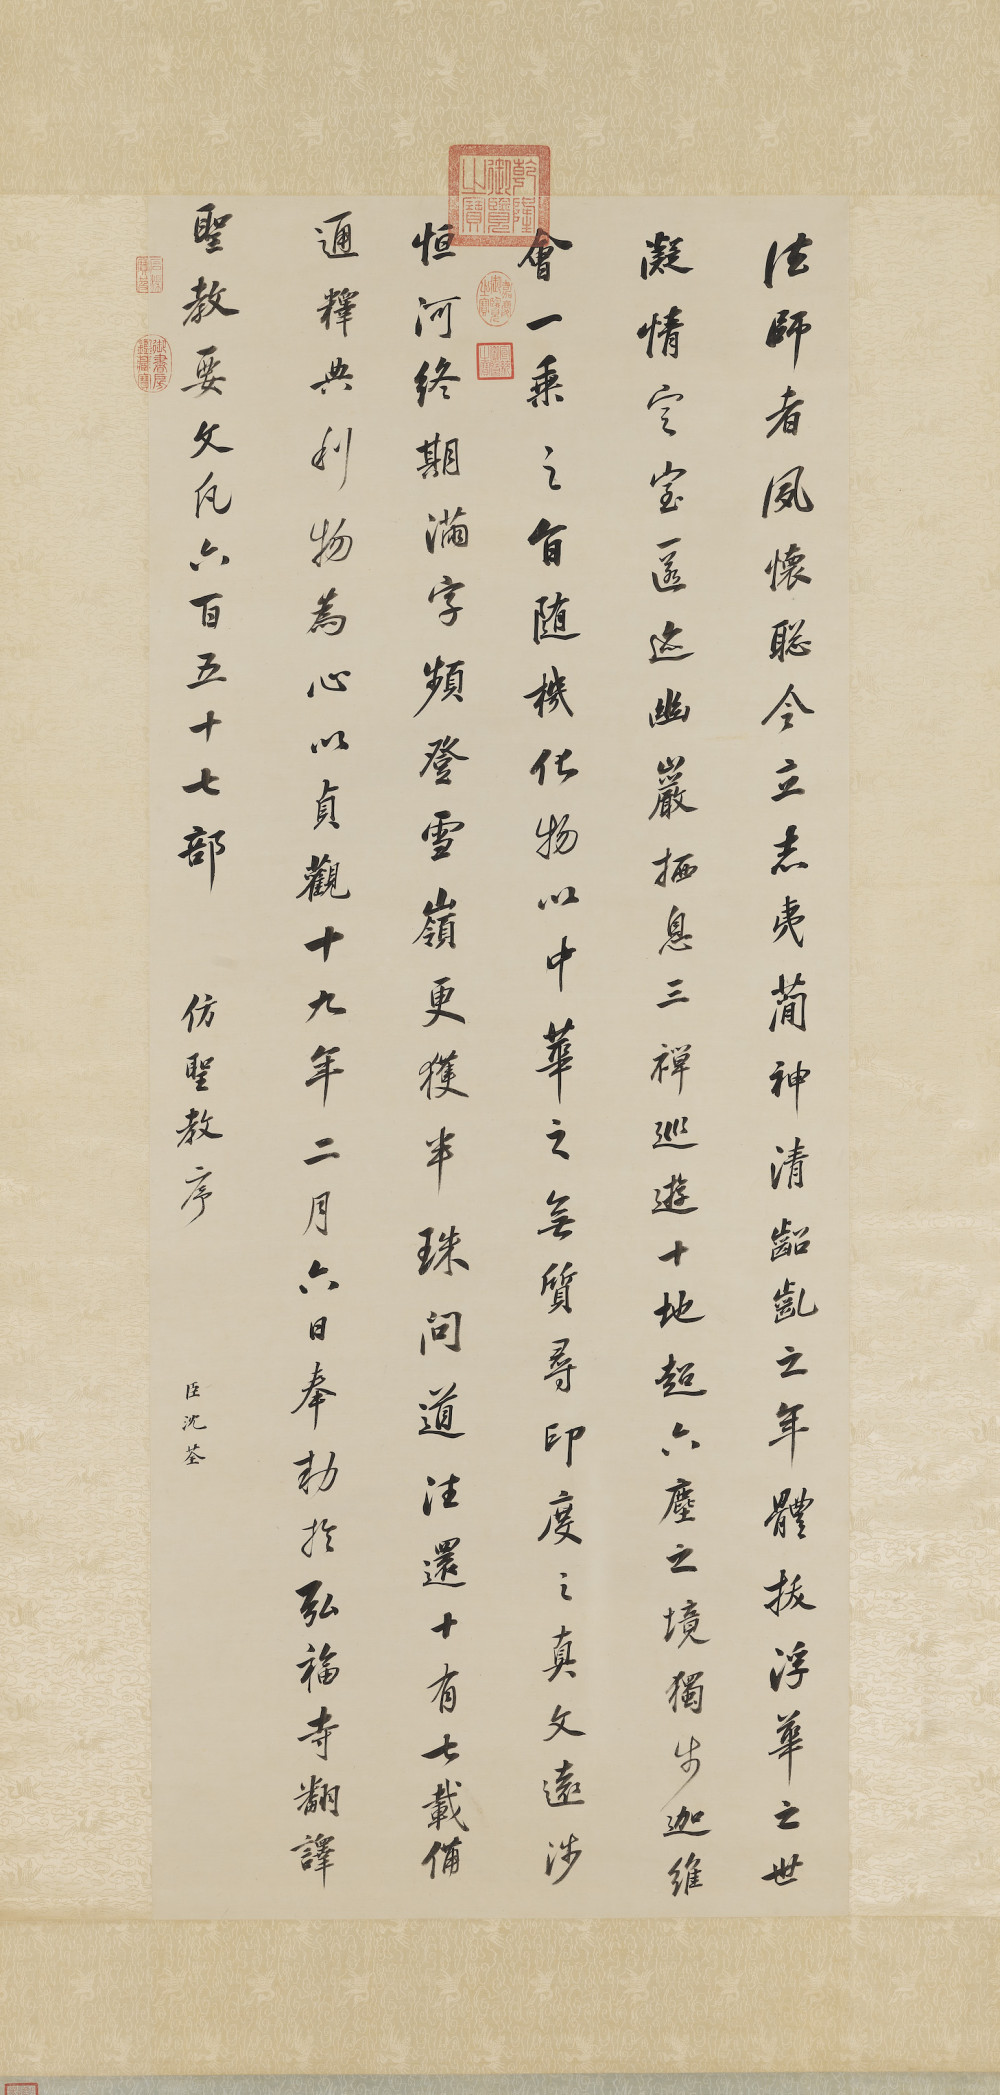 法師者夙懷聡令立志夷蕳神清齠齓之年體拔浮華之世
凝情定室匿迹幽巖栖息三禅巡遊十地超六塵之境獨步迦維
會一乘之旨随機化物以中華之無質尋印度之真文遠涉
恒河終期滿字頻登雪嶺更獲半珠問道往還十有七載備
通釋典利物為心以貞觀十九年二月六日奉勅於弘福寺翻譯
聖教要文凡六百五十七部 仿聖教序 臣沈荃
乾隆御覽之寶
嘉慶御覽之寶
御書房鑑藏寶